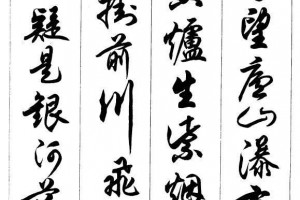 望廬山瀑
爐生紫烟
掛前川飛
疑是銀河